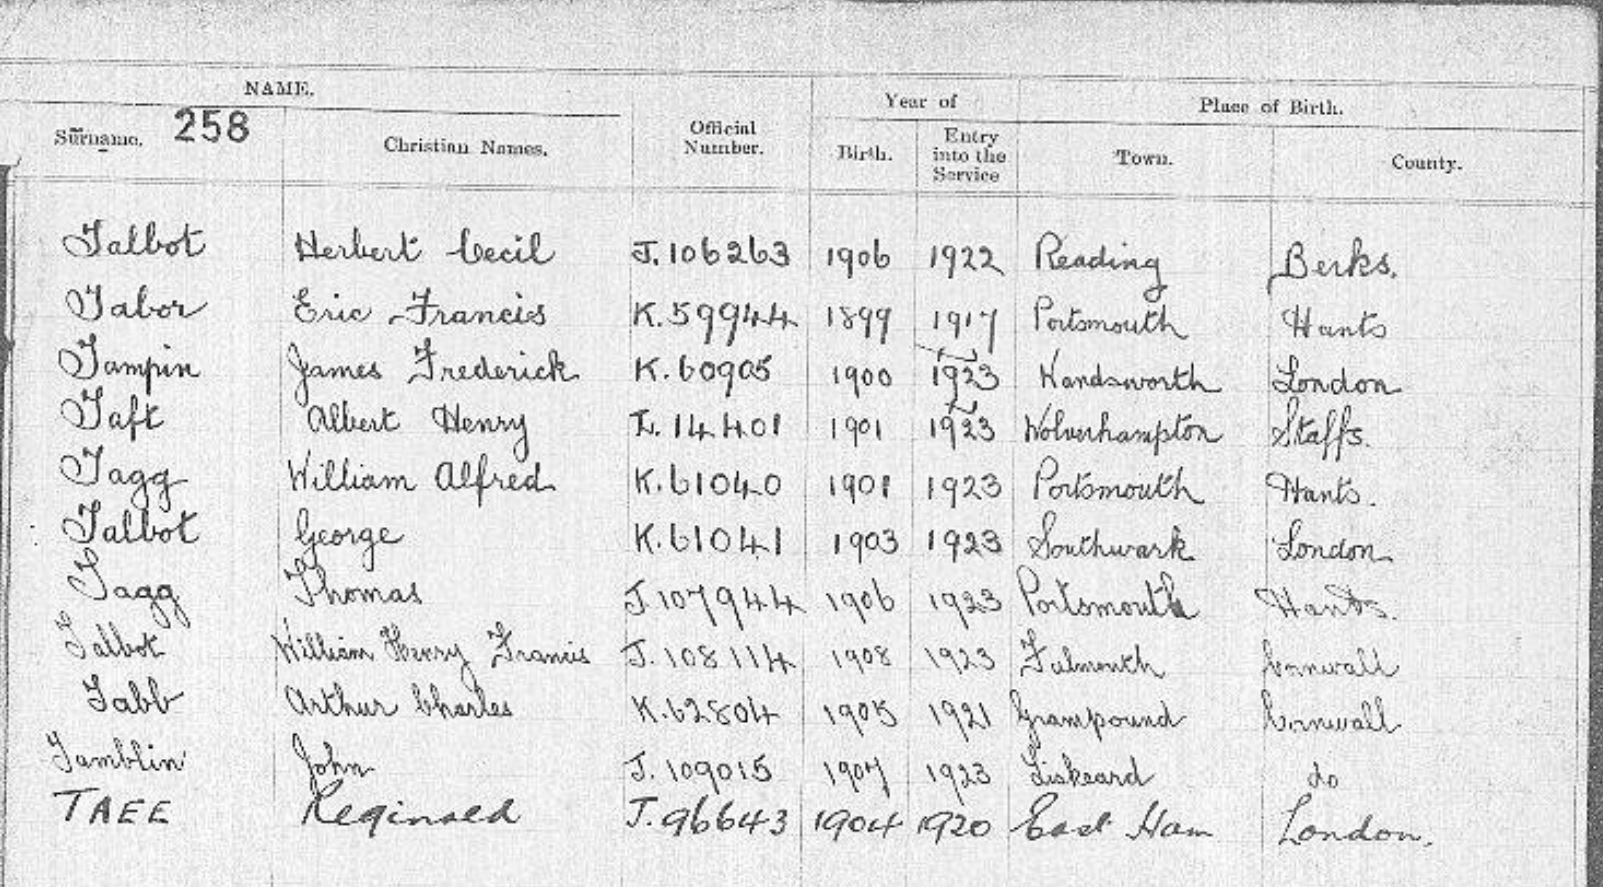 NAME. Year of Place of Birth.
Surname. 258 Christian Names. Official Number. Birth. Entry into the Service Town. County.
Talbot Herbert Cecil J.106263 1906 1922 Reading Berks.
Tabor Eric Francis K.59944 1899 1917 Portsmouth Hants
Tampin James Frederick K.60905 1900 1923 Wandsworth London
Taft Albert Henry L.14401 1901 1923 Wolverhampton Staffs.
Tagg William Alfred K.61040 1901 1923 Portsmouth Hants.
Talbot George K.61041 1903 1923 Southwark London
Tagg Thomas J.107944 1906 1923 Portsmouth Hants.
Talbot William Henry Francis J.108114 1908 1923 Falmouth Cornwall
Tabb Arthur Charles K.62804 1905 1921 Grampound Cornwall
Tamblin John J.109015 1907 1923 Liskeard do
TAEE Reginald J.96643 1904 1920 East Ham London.